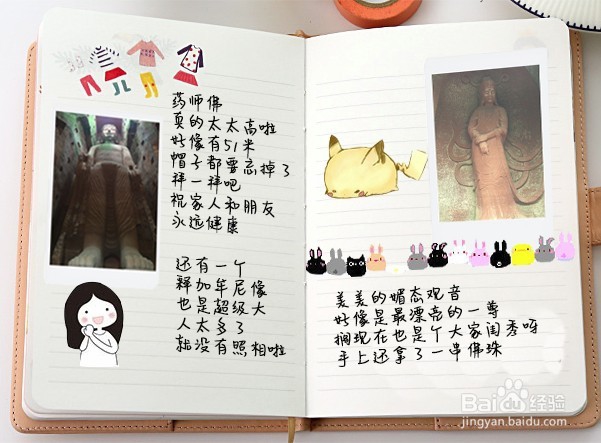 药师佛
真的太太高啦
好像有51米
帽子都要忘掉了
拜一拜吧
祝家人和朋友
永远健康
还有一个
释加牟尼像
也是超级大
人太多了
就没有照相啦
美美的媚态观音
好像是最漂亮的一尊
搁现在也是个大家闺秀呀
手上还拿了一串佛珠
Baidu 经验
jingyan.baidu.com